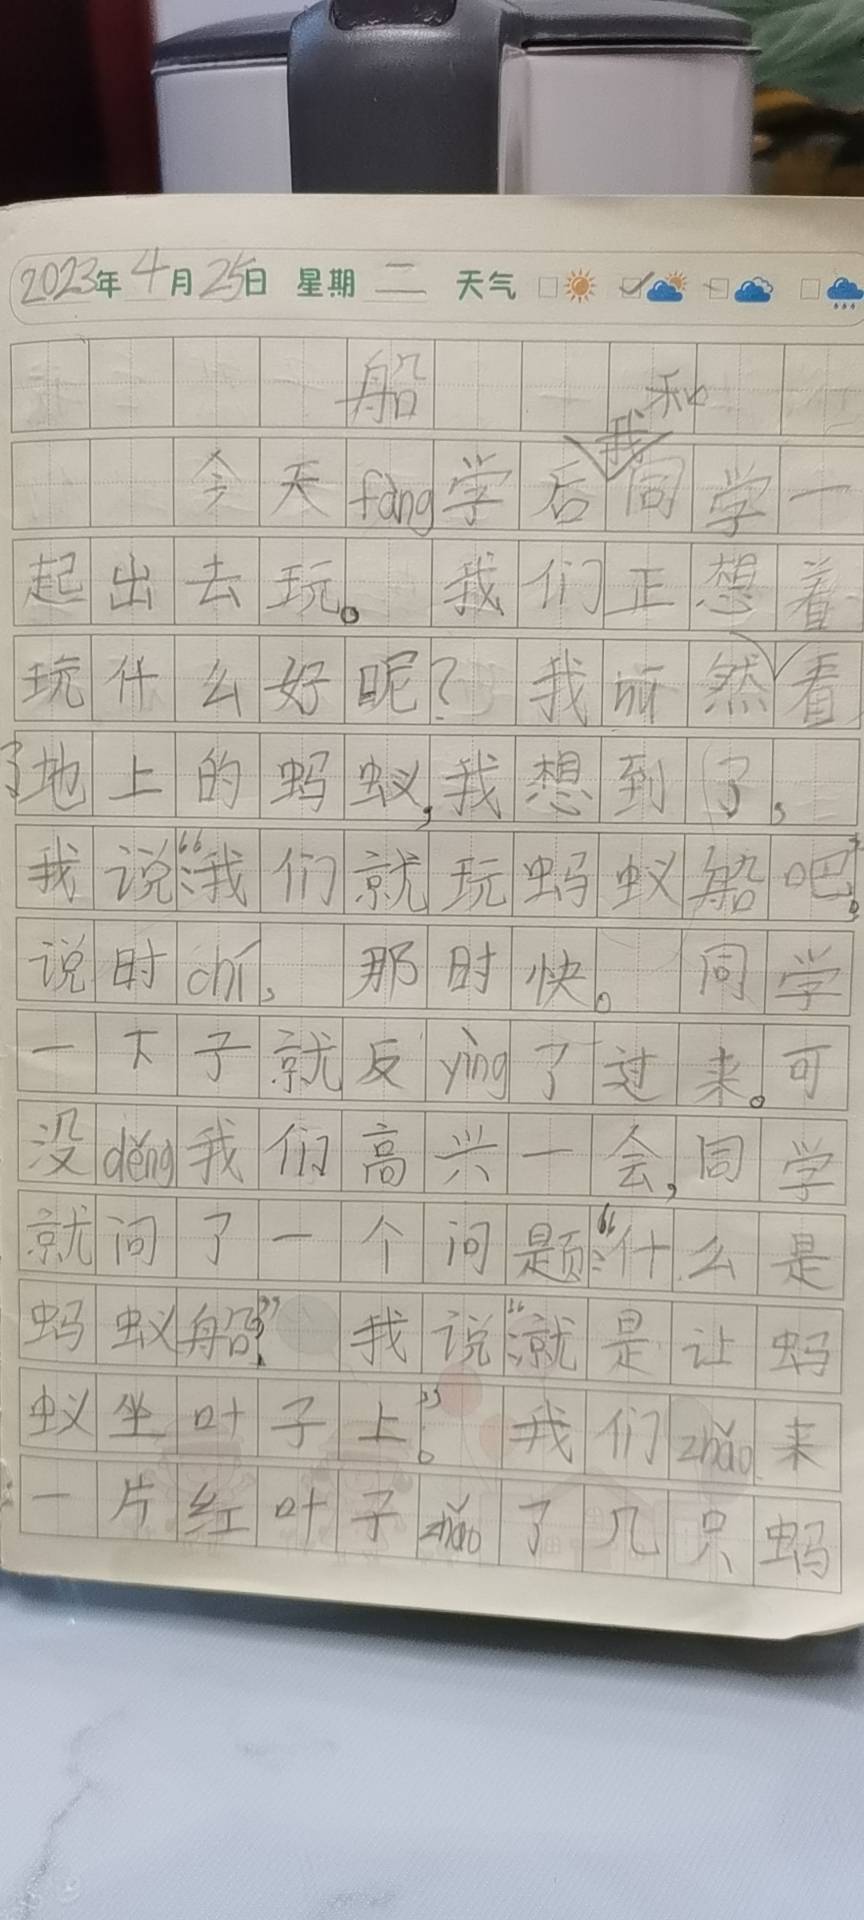 2023年4月25日 星期二 天气
船
今天fàng学后我和同学一
起出去玩。我们正想着
玩什么好呢？我然看
了地上的蚂蚁，我想到了，
我说：“我们就玩蚂蚁船吧”。
说时chí，那时快。同学
一下子就反yìng了过来。可
没děng我们高兴一会，同学
就问了一个问题：“什么是
蚂蚁船？”我说：“就是让蚂
蚁坐叶子上”。我们zhǎo来
一片红叶子zhǎo了几只蚂